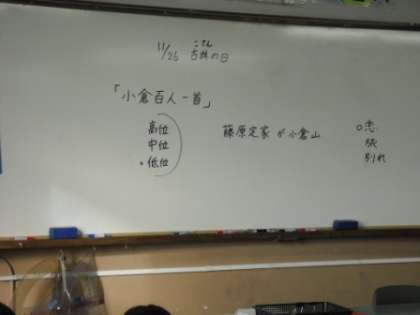 こてん
11/26 古典の日
「小倉百人一首」
高位
中位
・低位
藤原定家が小倉山
○恋
旅
別れ